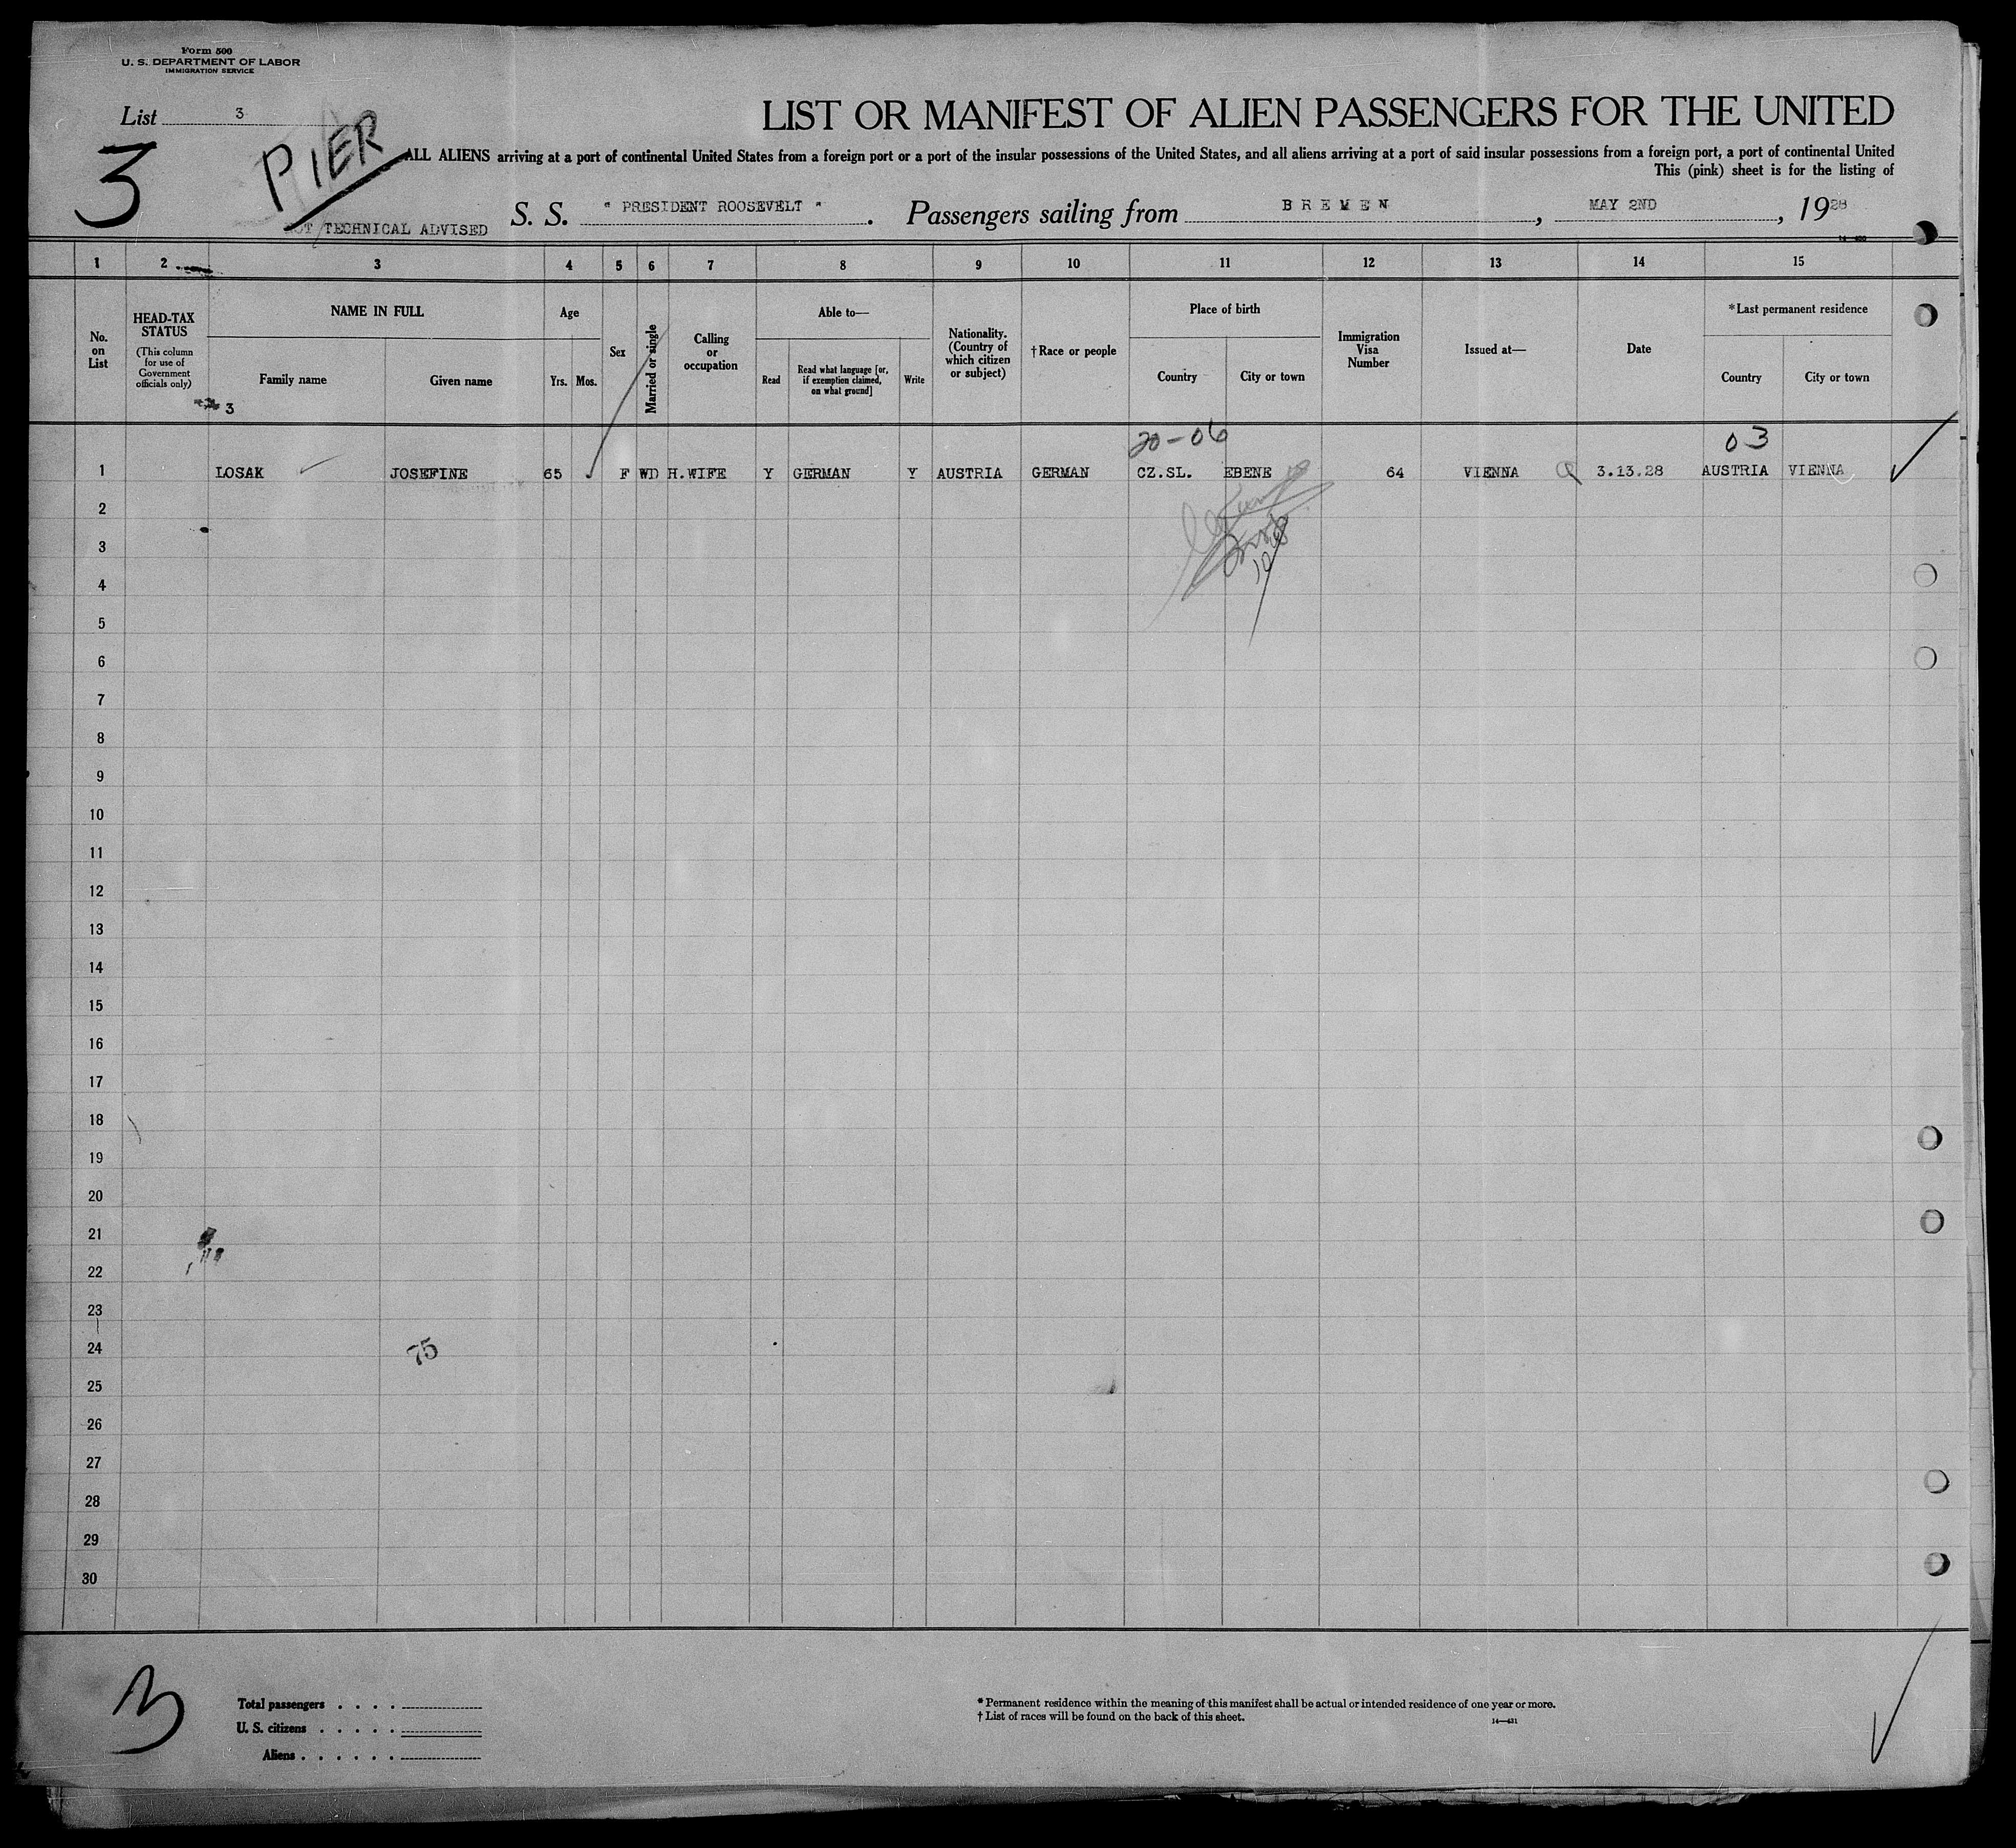 Form 500
U. S. DEPARTMENT OF LABOR
IMMIGRATION SERVICE
List 3
3
PIER
LIST OR MANIFEST OF ALIEN PASSENGERS FOR THE UNITED
ALL ALIENS arriving at a port of continental United States from a foreign port or a port of the insular possessions of the United States, and all aliens arriving at a port of said insular possessions from a foreign port, a port of continental United
This (pink) sheet is for the listing of
TECHNICAL ADVISED
S. S. " PRESIDENT ROOSEVELT " . Passengers sailing from BREMEN , MAY 2ND , 1928
1 2 3 4 5 6 7 8 9 10 11 12 13 14 15
No. on List
HEAD-TAX STATUS
(This column for use of Government officials only)
NAME IN FULL
Family name Given name
Age
Yrs. Mos.
Sex
Married or single
Calling or occupation
Able to—
Read
Read what language [or, if exemption claimed, on what ground]
Write
Nationality. (Country of which citizen or subject)
†Race or people
Place of birth
Country City or town
Immigration Visa Number
Issued at—
Date
*Last permanent residence
Country City or town
3
20-06 03
1 LOSAK JOSEFINE 65 F WD H.WIFE Y GERMAN Y AUSTRIA GERMAN CZ.SL. EBENE 64 VIENNA 3.13.28 AUSTRIA VIENNA
2
3
4
5
6
7
8
9
10
11
12
13
14
15
16
17
18
19
20
21
22
23
24 75
25
26
27
28
29
30
3
Total passengers . . . .
U. S. citizens . . . . .
Aliens . . . . . .
* Permanent residence within the meaning of this manifest shall be actual or intended residence of one year or more.
† List of races will be found on the back of this sheet.
14—431